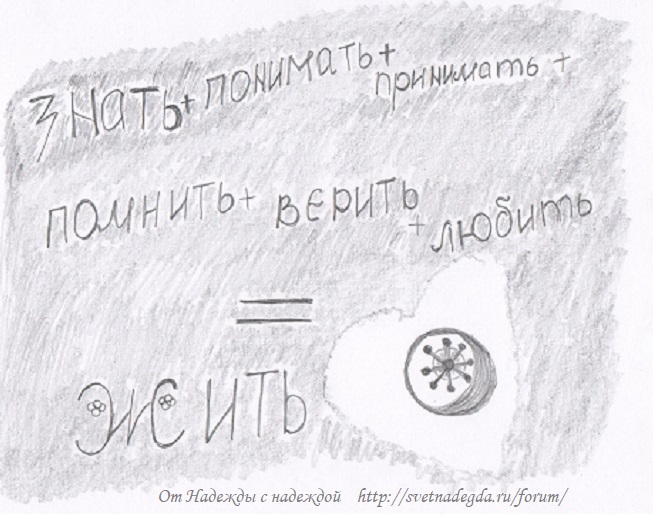 Знать+ понимать+
принимать +
помнить+ верить
+ любить
=
Жить
От Надежды с надеждой http://svetnadegda.ru/forum/